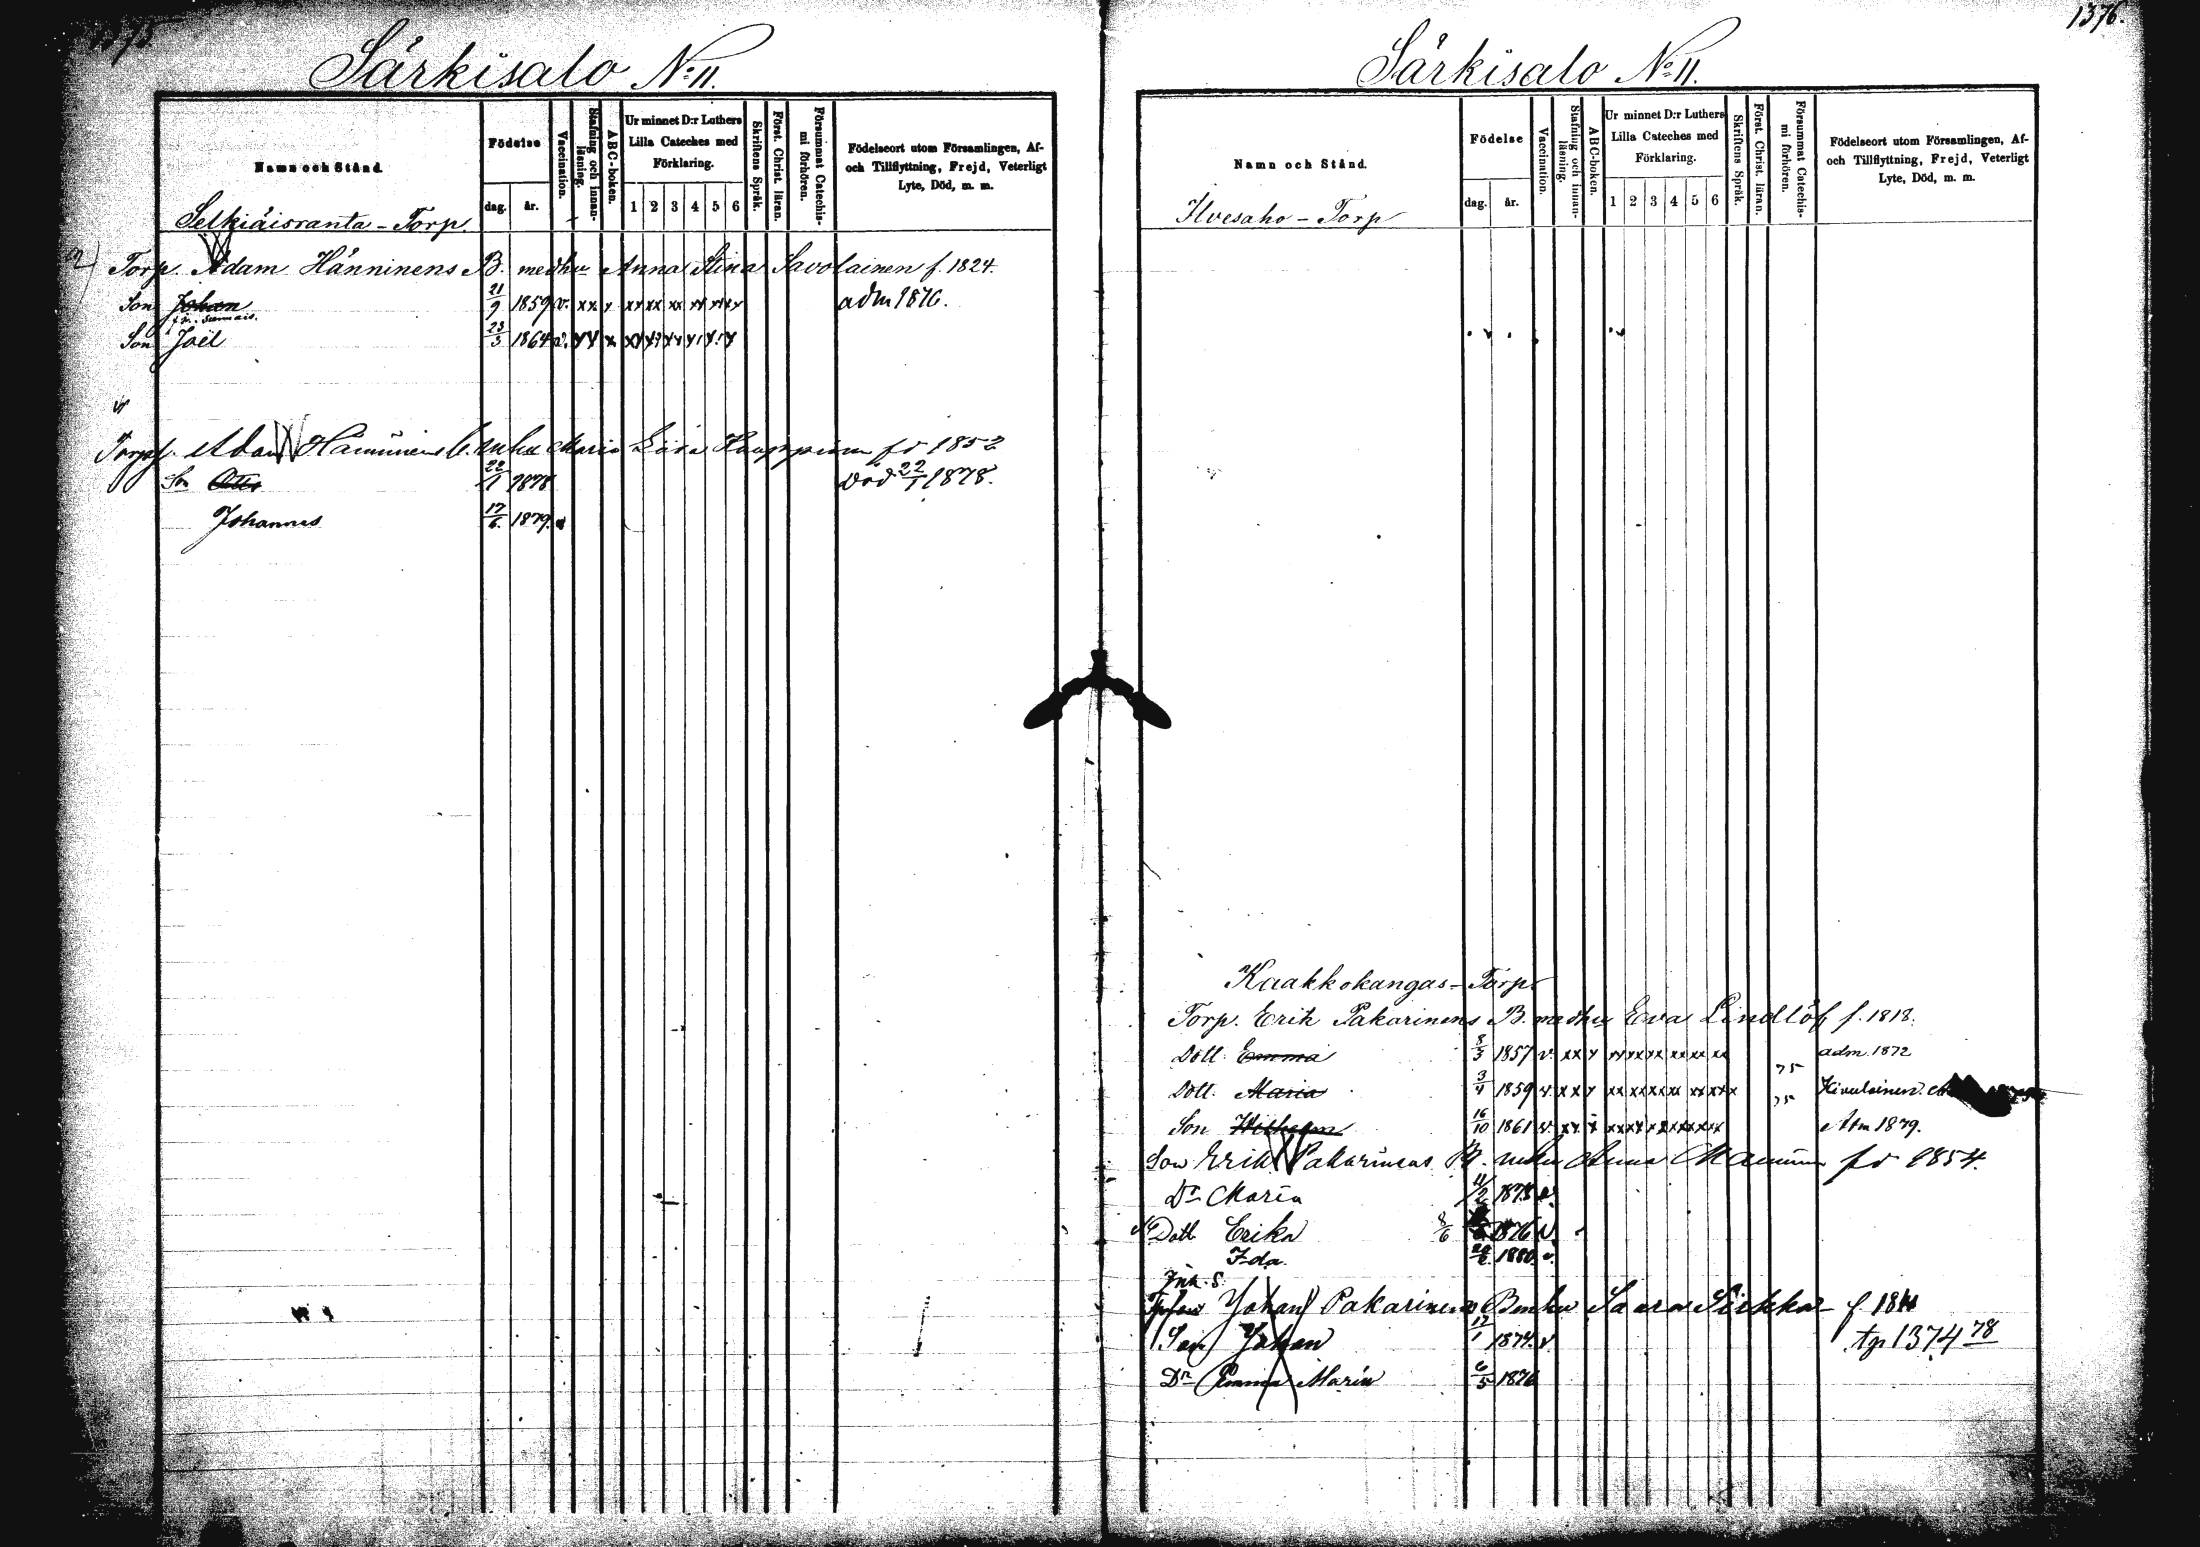 1375
Särkisalo No 11.
Namn och Stånd.
Födelse
dag.
år.
Vaccination.
Stafning och innan-
läsning.
ABC-boken.
Ur minnet D:r Luthers
Lilla Cateches med
Förklaring.
1 2 3 4 5 6
Skriftens Språk.
Först. Christ. läran.
Försummat Catechis-
mi förhören.
Födelseort utom Församlingen, Af-
och Tillflyttning, Frejd, Veterligt
Lyte, Död, m. m.
Selkiäisranta - Torp.
Torp. Adam Hänninens B. med hu Anna Stina Savolainen f. 1824.
Son Johan 21/9 1859 v. xx x xx xx xx xx xx x adm 1876.
Son Joël 23/3 1864 v.
Torpf. Adam Hänninens
Son Otto 22/1 1878 död 22/1 1878.
Johannes 17/6 1879.
1376.
Särkisalo No 11.
Namn och Stånd.
Födelse
dag.
år.
Vaccination.
Stafning och innan-
läsning.
ABC-boken.
Ur minnet D:r Luthers
Lilla Cateches med
Förklaring.
1 2 3 4 5 6
Skriftens Språk.
Först. Christ. läran.
Försummat Catechis-
mi förhören.
Födelseort utom Församlingen, Af-
och Tillflyttning, Frejd, Veterligt
Lyte, Död, m. m.
Ilvesaho - Torp
Kaakkokangas - Torp.
Torp. Erik Pakarinens B. med hu Eva Lindlöf f. 1818.
Dott. Emma 8/3 1857 v. xx x 75 adm. 1872
Dott. Maria 3/4 1859 v. xx x 75
Son Wilhelm 16/10 1861 v. xx x Adm 1879.
Son Erik Pakarinens Anna fd 1854.
Dr Maria 11/2 1878 v.
Dott Erika 8/6 1876 v
Ida 1880. v.
Inh. S.
Johan Pakarinens B m hu Saara Sirkka f 18
Son Johan 17/1 1874. v tp 1374 78
Dr Emma Maria 6/5 1876